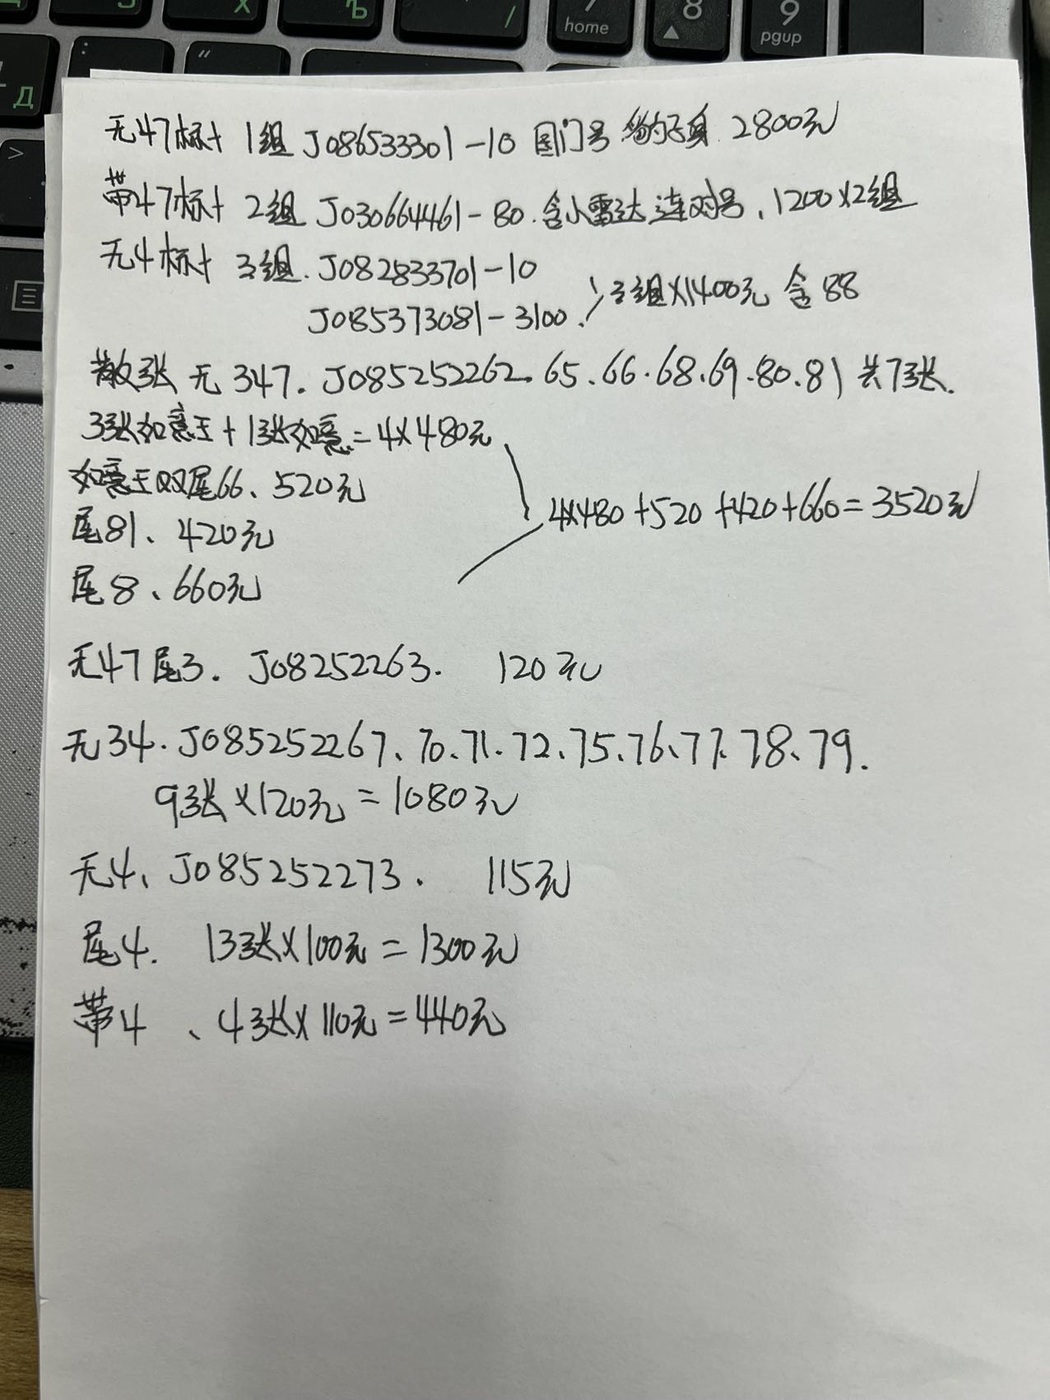 无47标十 1组 J086533301-10 国门号 豹子身 2800元
带47标十 2组 J030664461-80. 含小雷达 连对号、1200×2组
无4标十 3组. J082833701-10
J085373081-3100. 3组×1400元 含88
散张 无347. J085252262. 65. 66. 68. 69. 80. 81 共7张.
3张如意王+1张如意=4×480元
如意王双尾66、520元
4×480+520+420+660=3520元
尾81、420元
尾8、660元
无47尾3. J08252263. 120元
无34. J085252267、70. 71. 72. 75. 76. 77. 78、79.
9张×120元=1080元
无4、J085252273. 115元
尾4. 13张×100元=1300元
带4、4张×110元=440元
home
8
9
pgup
Д